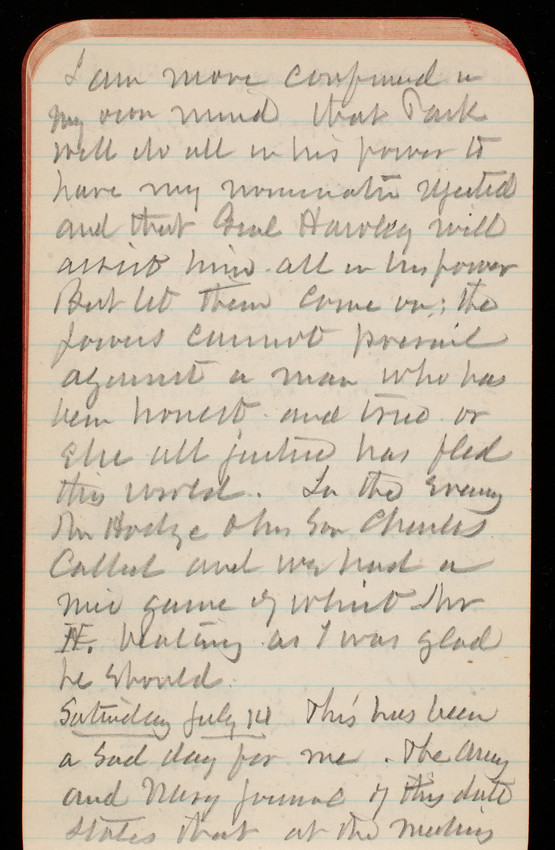 I am more confirmed in
my own mind that Park
will do all in his power to
have my nomination rejected
and that Genl Hawley will
assist him all in his power
But let them come on; the
powers cannot prevail
against a man who has
been honest and true or
else all justice has fled
this world. In the Evening
Mr Hodge & his Son Charles
Called and we had a
nice game of whist Mr
H. beating as I was glad
he should.
Saturday July 14 This has been
a Sad day for me. The Army
and Navy Journal of this date
states that at the meeting